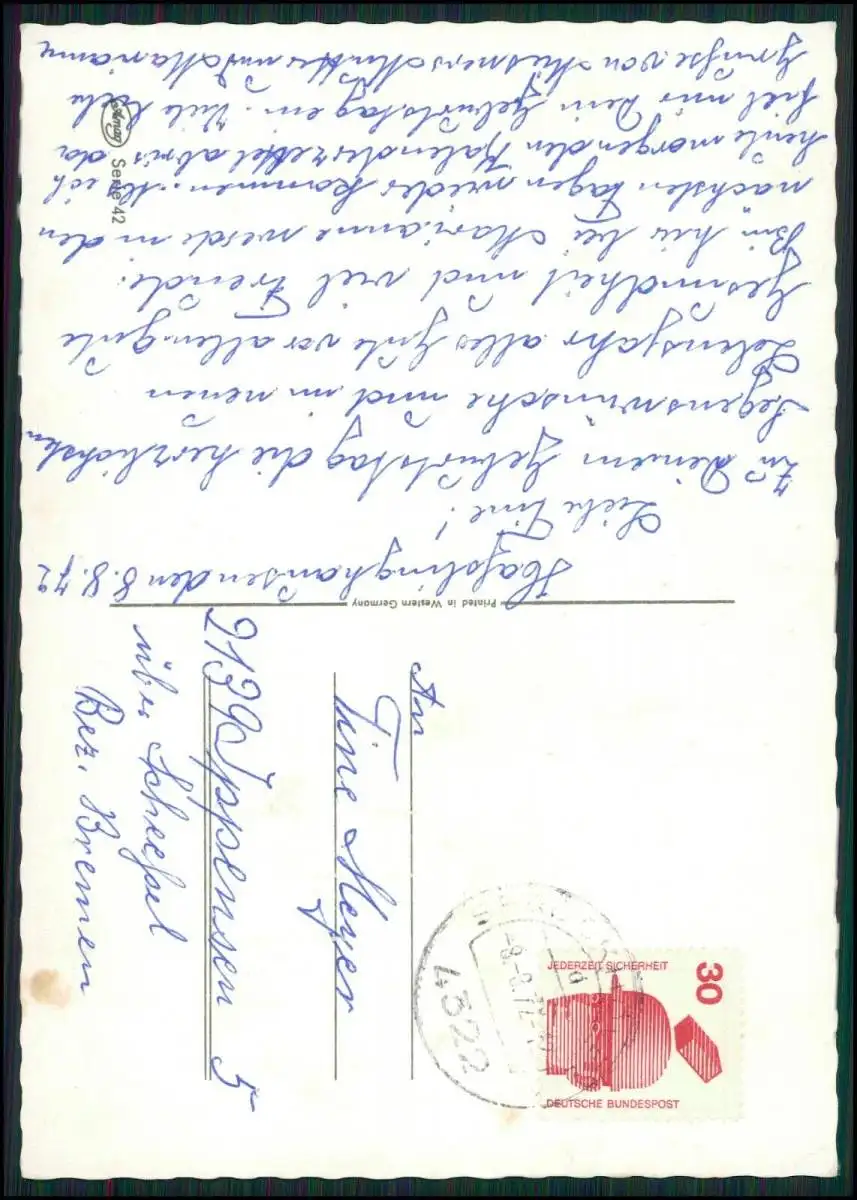 Haßlinghausen den 8.8.72
Liebe Tine!
Zu Deinem Geburtstag die herzlichsten
Segenswünsche und im neuen
Lebensjahr alles Gute vor allen gute
Gesundheit und viel Freude.
Bin hir bei Marianne werde in den
nächsten Tagen wieder kommen. Als ich
heute morgen den Kalenderzettel abris da
fiel mir Dein Geburtstag ein. Viele liebe
Grüße von Mutter und Marianne
Amag Serie 42
Printed in Western Germany
An
Tine Meyer
2139 Ippensen 5
über Scheeßel
Bez. Bremen
30
JEDERZEIT SICHERHEIT
DEUTSCHE BUNDESPOST
-8.-8.72
4322